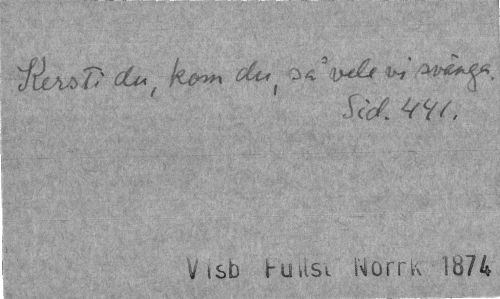 Kersti du, kom du, så vele vi svänga.
Sid. 441.
Visb Fullst Norrk 1874